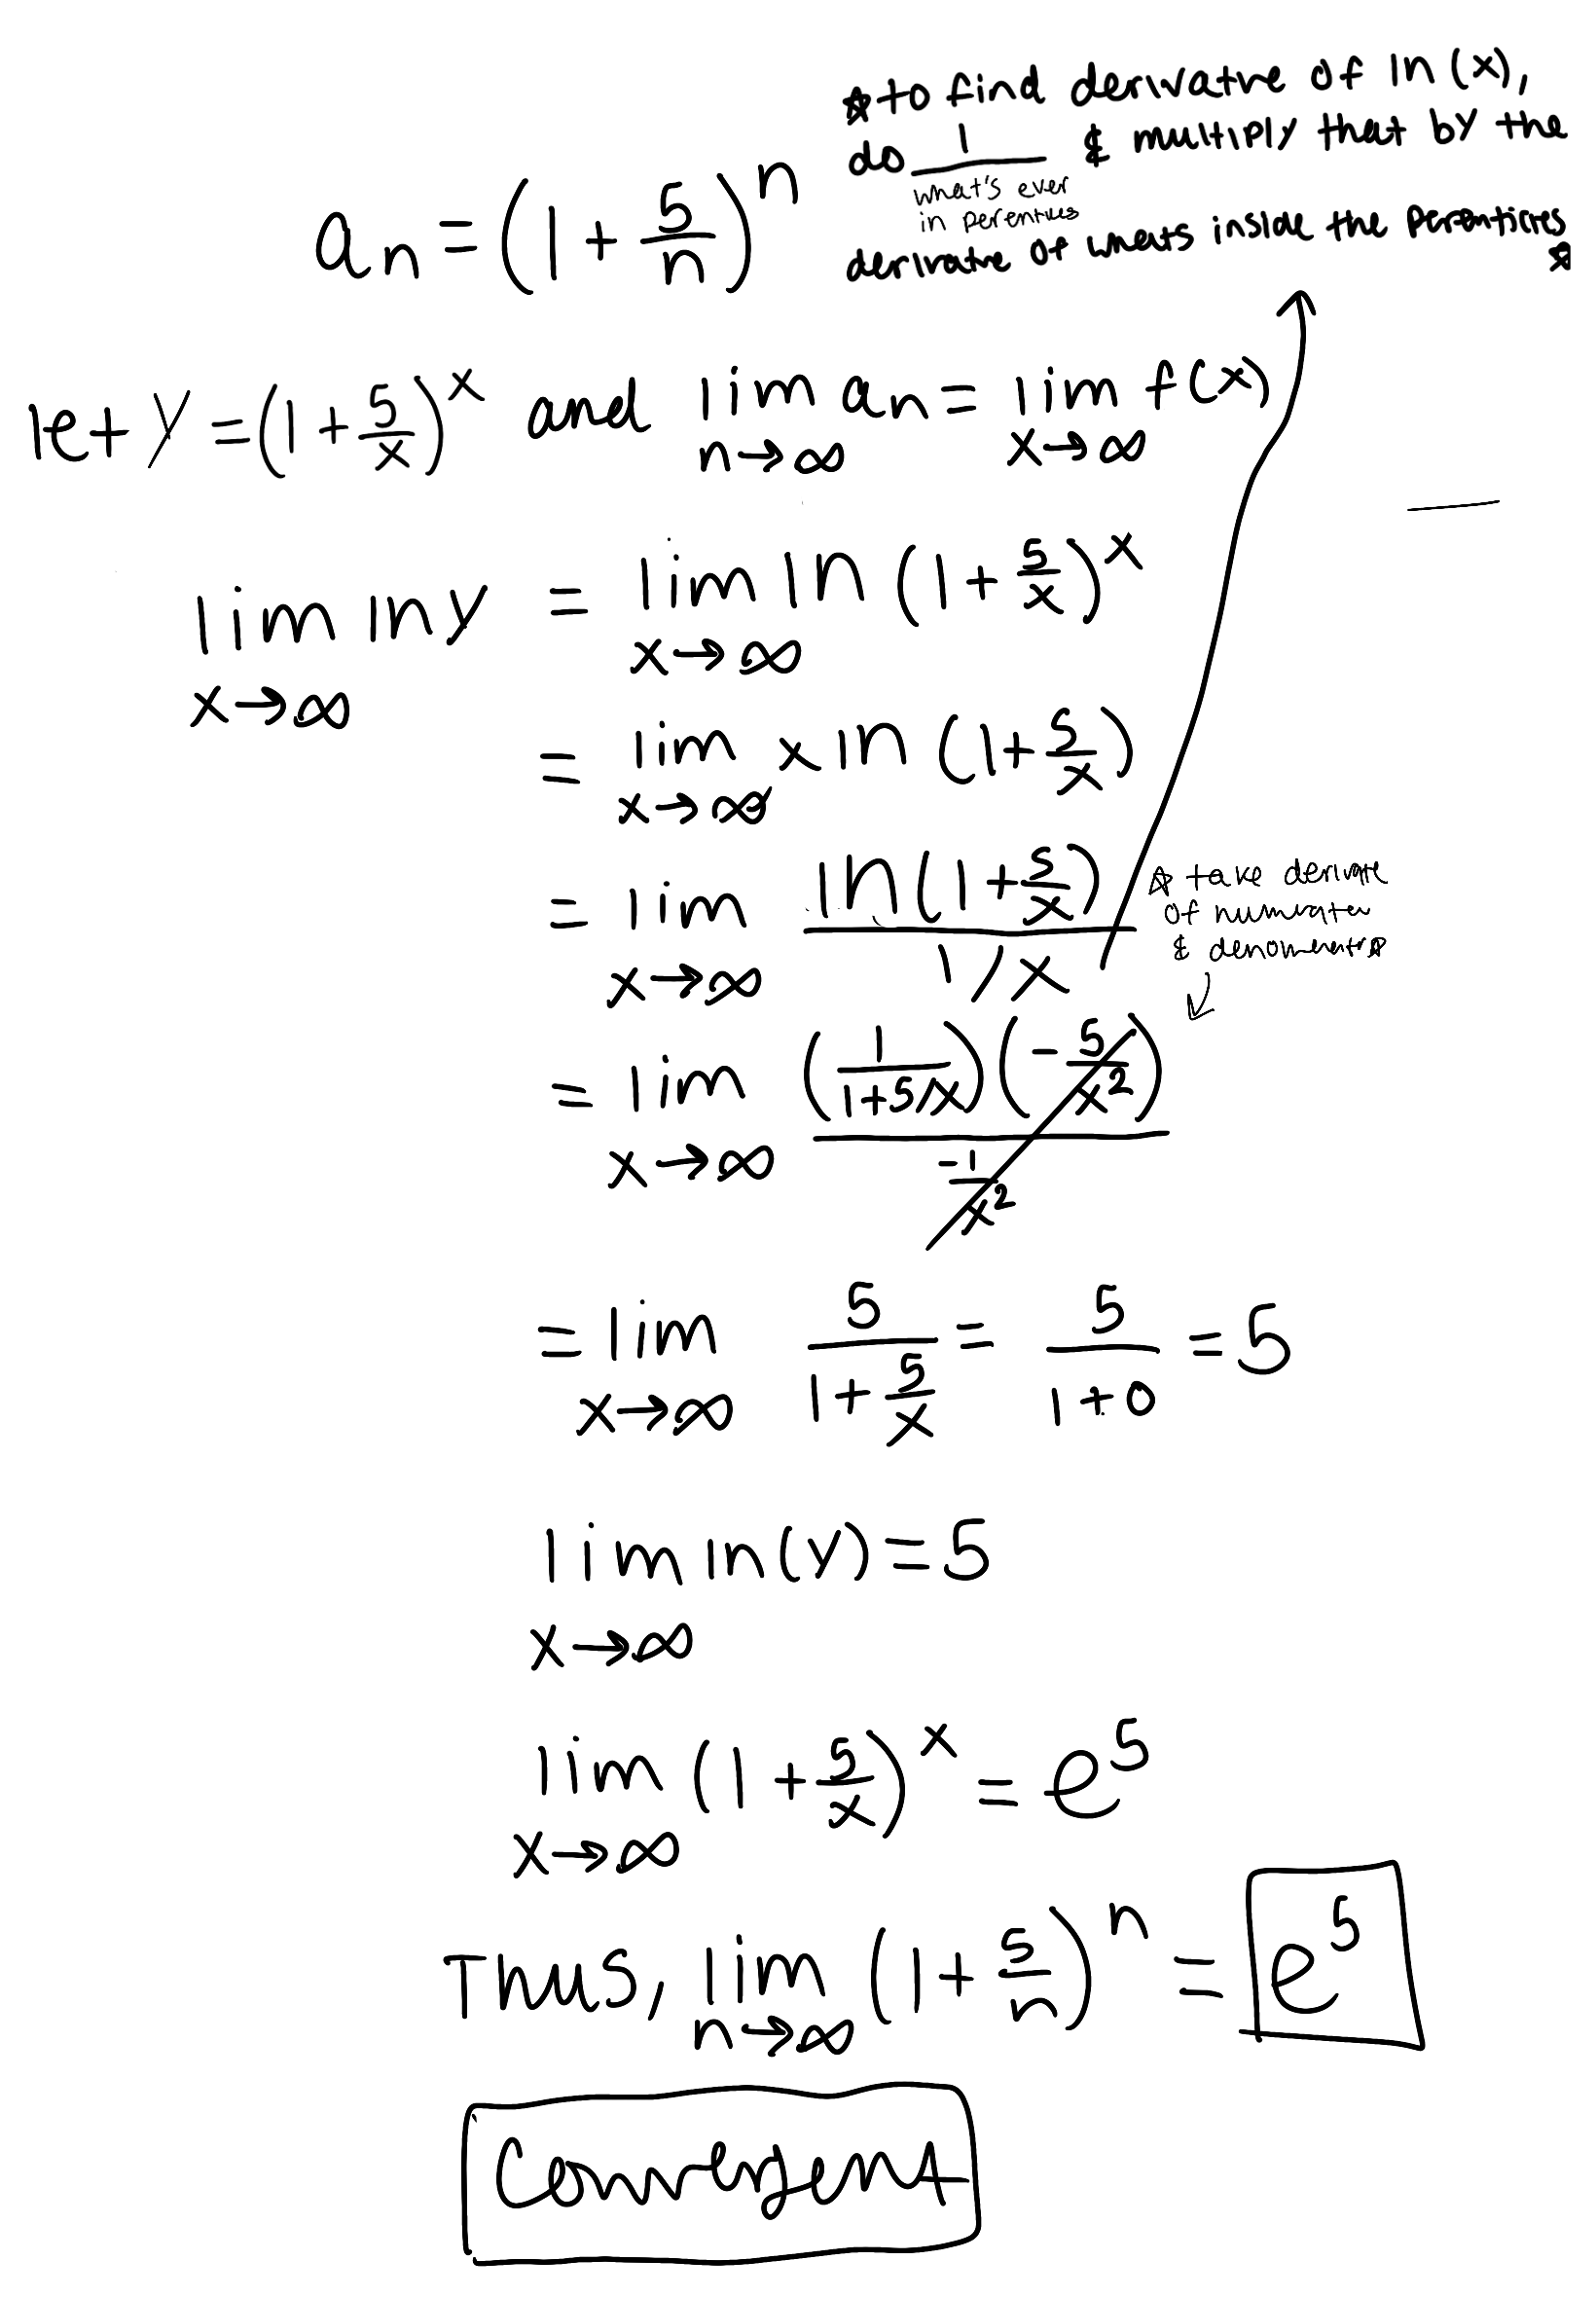 ☆to find derivative of ln(x),
do 1/(what's ever in perentices) & multiply that by the
derivative of whats inside the perenticies ☆
an = (1 + 5/n)^n
let y = (1 + 5/x)^x and lim n→∞ an = lim x→∞ f(x)
lim x→∞ ln y = lim x→∞ ln (1 + 5/x)^x
= lim x→∞ x ln (1 + 5/x)
= lim x→∞ ln(1 + 5/x) / (1/x)
☆ take derivate
of numrater
& denomenatr☆
= lim x→∞ (1/(1+5/x)) (-5/x²) / (-1/x²)
= lim x→∞ 5/(1 + 5/x) = 5/(1+0) = 5
lim x→∞ ln(y) = 5
lim x→∞ (1 + 5/x)^x = e^5
Thus, lim n→∞ (1 + 5/n)^n = e^5
Convergent